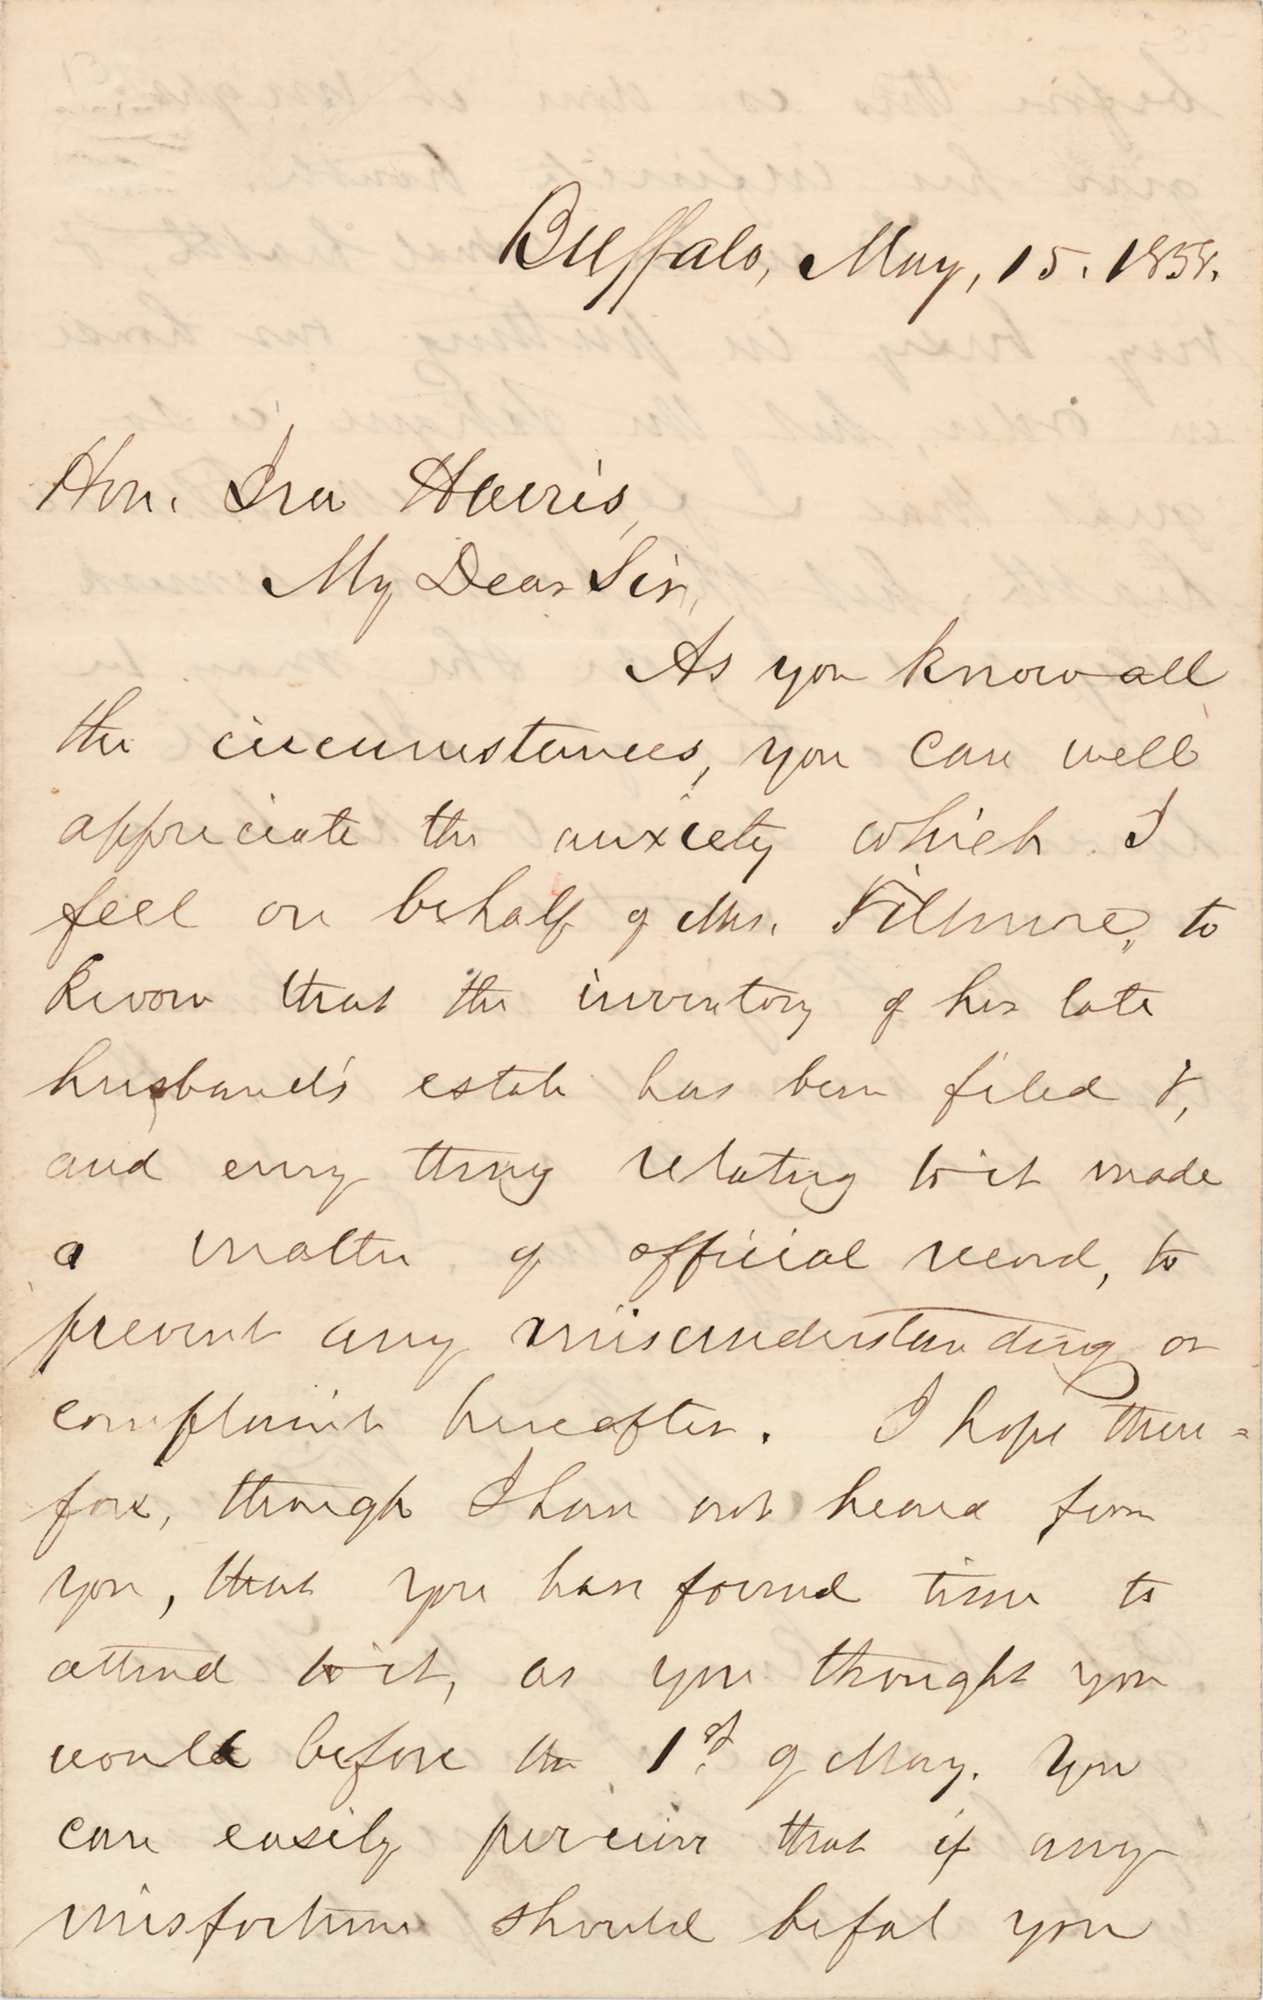 Buffalo, May, 15. 1858.
Hon. Ira Harris,
My Dear Sir,
As you know all
the circumstances, you can well
appreciate the anxiety which I
feel on behalf of Mrs. Fillmore, to
know that the inventory of her late
husband's estate has been filed &,
and every thing relating to it made
a matter of official record, to
prevent any misunderstanding or
complaint hereafter. I hope there=
fore, though I have not heard from
you, that you have found time to
attend to it, as you thought you
would before the 1st. of May. You
can easily perceive that if any
misfortune should befal you